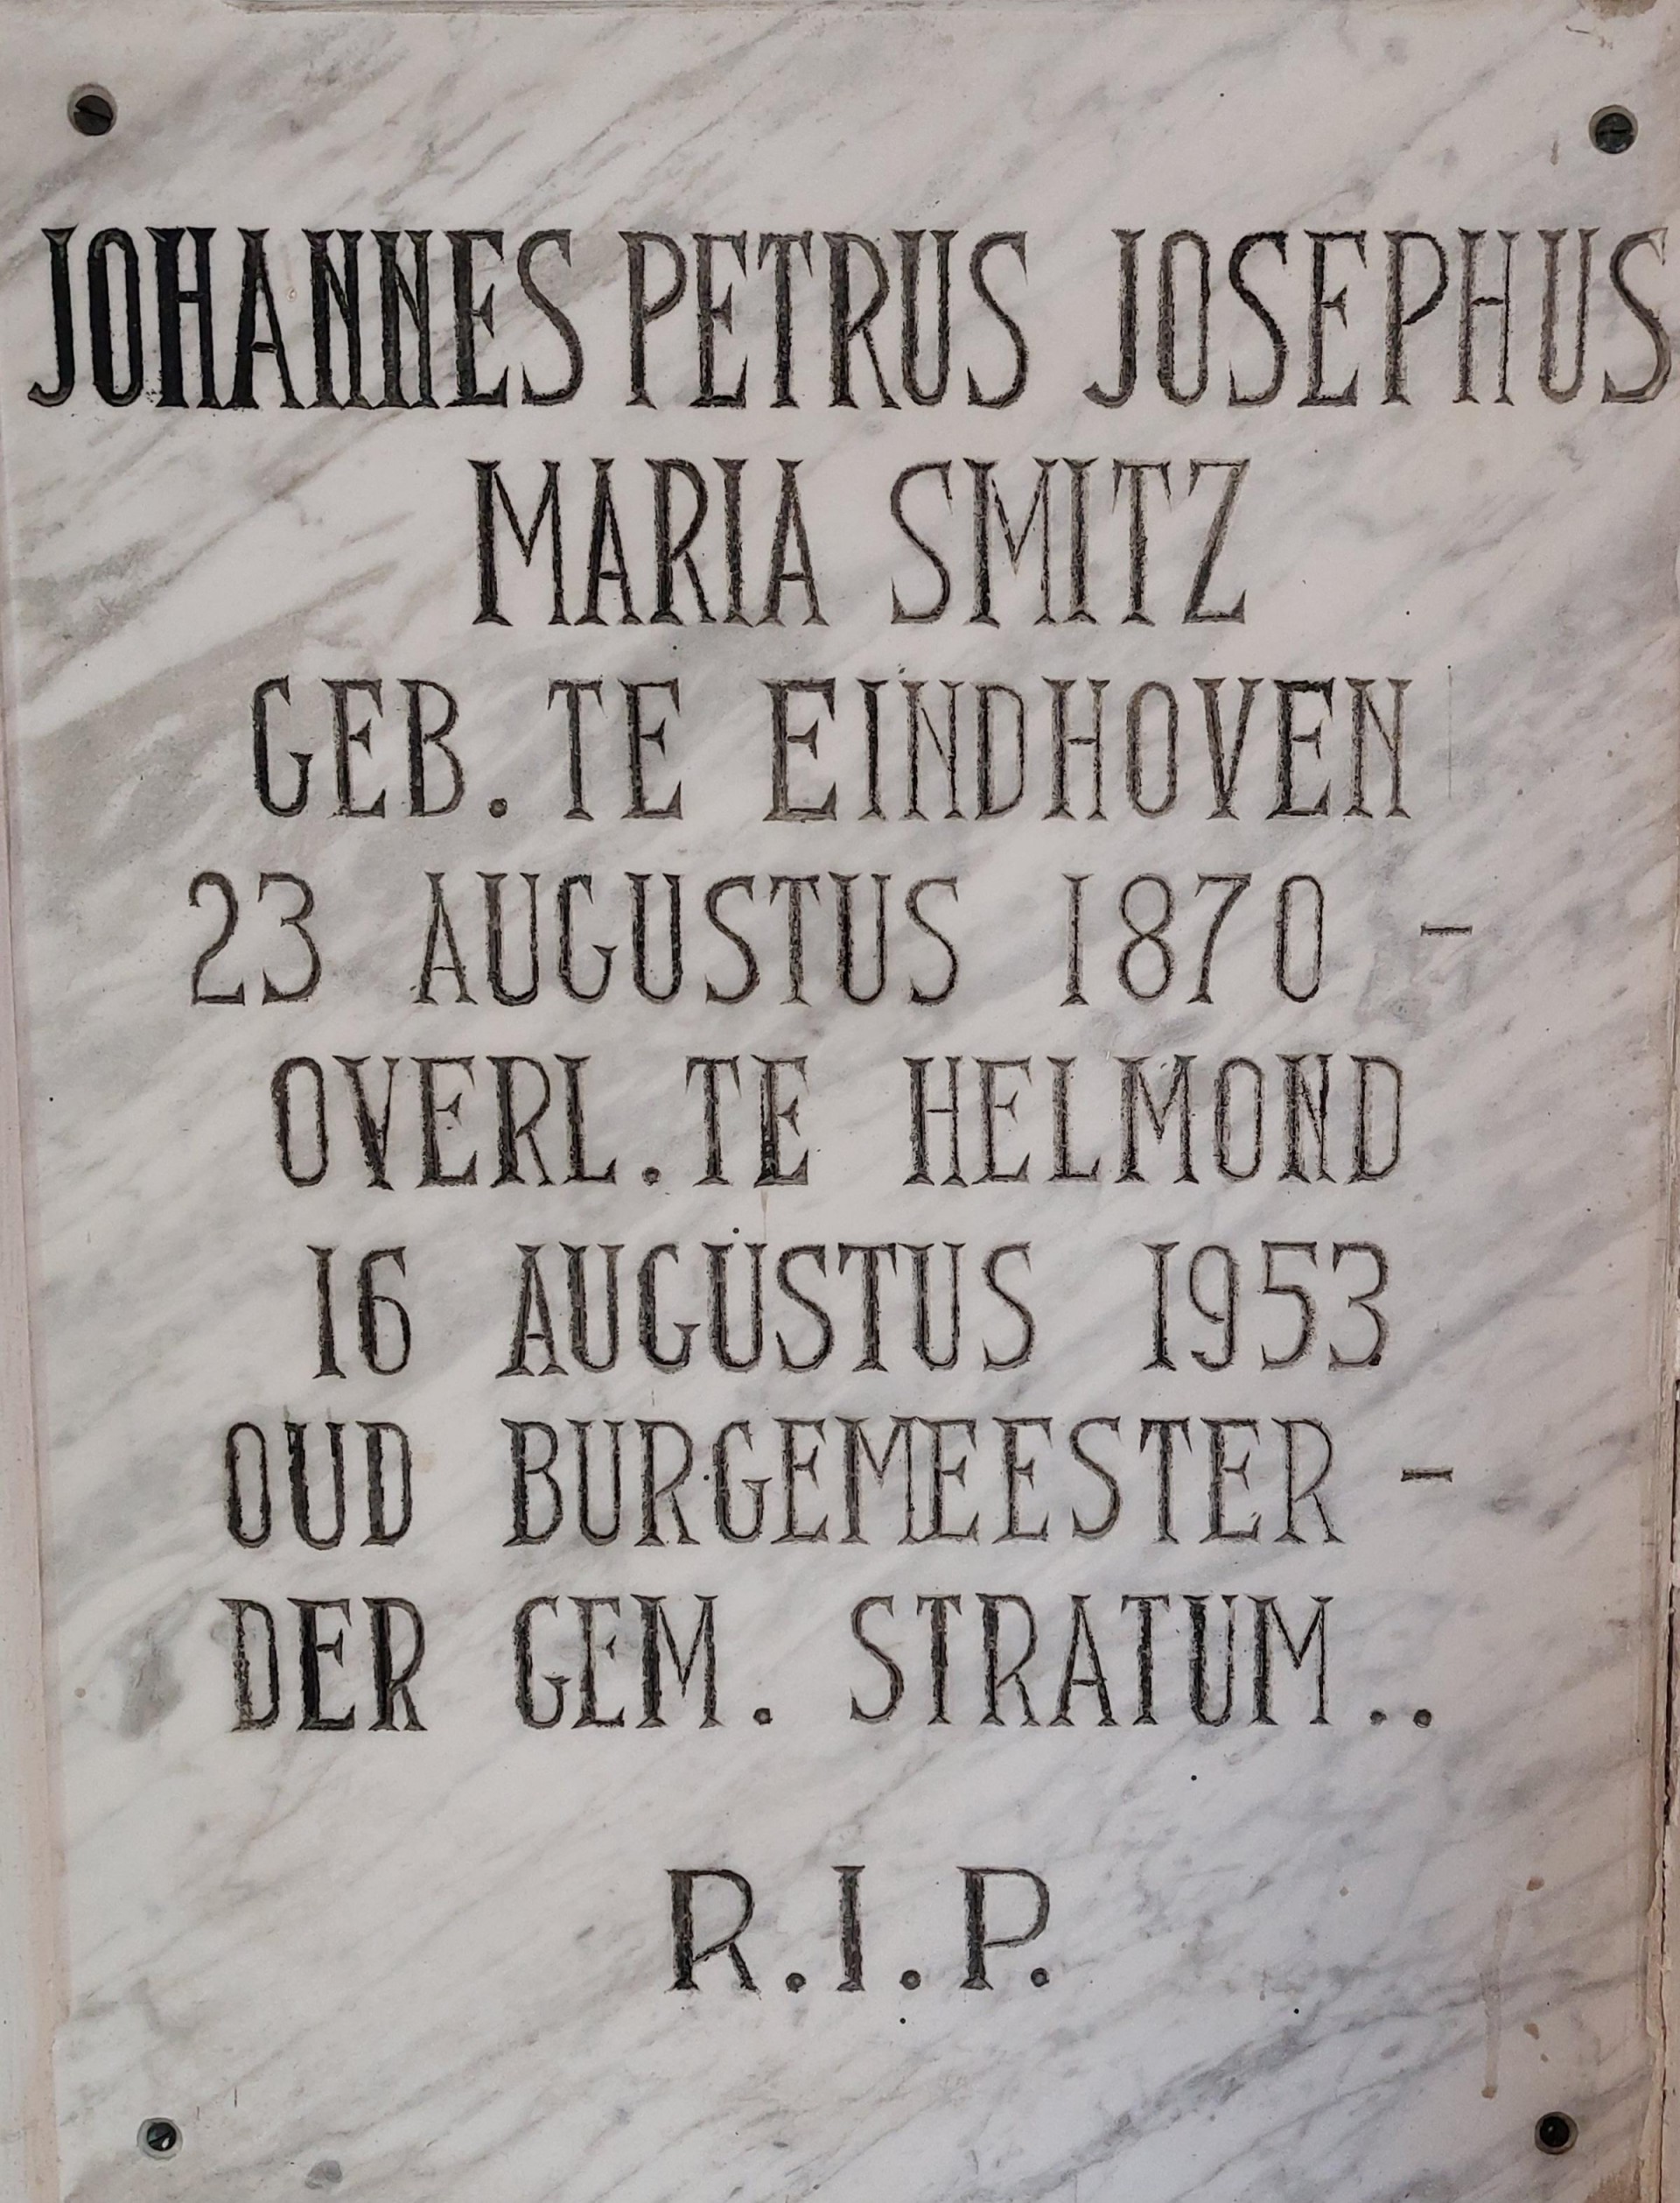 JOHANNES PETRUS JOSEPHUS
MARIA SMITZ
GEB. TE EINDHOVEN
23 AUGUSTUS 1870 -
OVERL. TE HELMOND
16 AUGUSTUS 1953
OUD BURGEMEESTER -
DER GEM. STRATUM..
R.I.P.